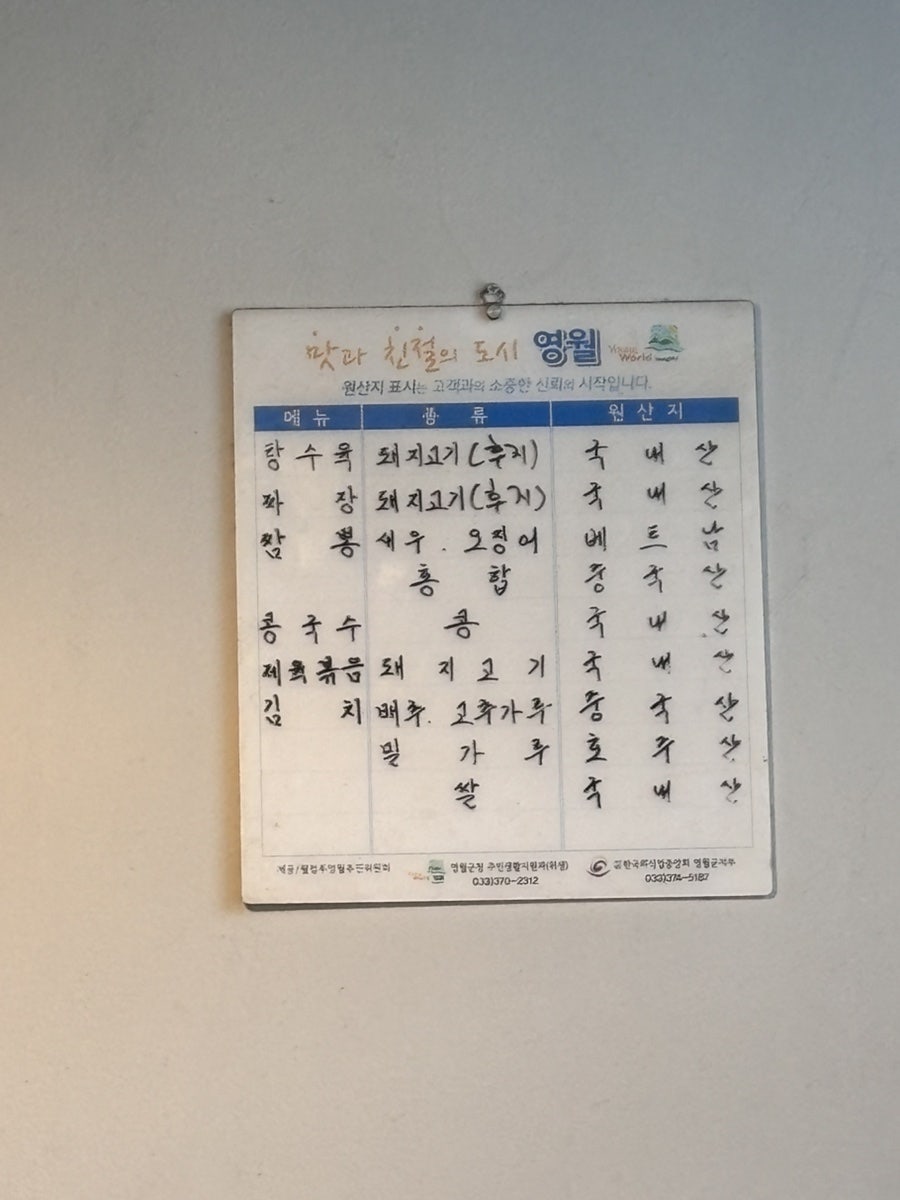 맛과 친절의 도시 영월 Young World
원산지 표시는 고객과의 소중한 신뢰의 시작입니다.
메뉴 종류 원산지
탕수육 돼지고기(후지) 국내산
짜장 돼지고기(후지) 국내산
짬뽕 새우. 오징어 베트남
홍합 중국산
콩국수 콩 국내산
제육볶음 돼지고기 국내산
김치 배추. 고추가루 중국산
밀가루 호주산
쌀 국내산
영월군청 주민생활지원과(위생) 한국외식업중앙회 영월군지부
033)370-2312 033)374-5187